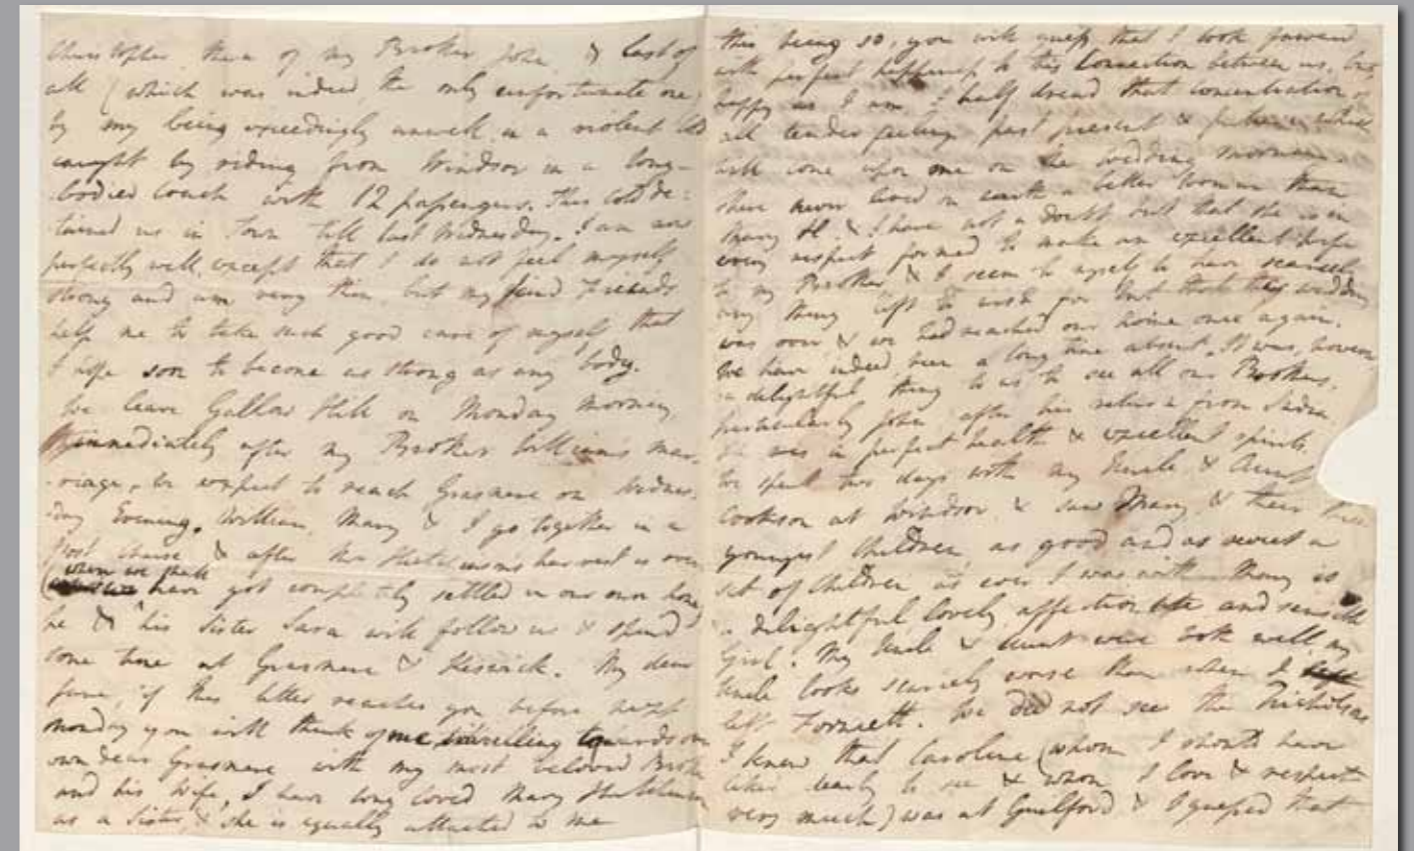 Christopher, then of my Brother John, & last of
all (which was indeed the only unfortunate one)
by my being exceedingly unwell in a violent cold
caught by riding from Windsor in a long-
bodied coach with 12 passengers. This cold de-
tained us in Town till last Wednesday. I am now
perfectly well, except that I do not feel myself
strong and am very thin, but my kind Friends
help me to take such good care of myself that
I hope soon to become as strong as any body.
We leave Gallow Hill on Monday morning,
immediately after my Brother Williams mar-
riage, we expect to reach Grasmere on Wednes-
day Evening. William, Mary & I go together in a
Post chaise, & after Mr Hutchinson's harvest is over
(when we shall
have got completely settled in our own home)
he & his Sister Sara will follow us & spend
some time at Grasmere & Keswick. My dear
Jane, if this letter reaches you before next
Monday you will think of me, travelling towards our
own dear Grasmere with my most beloved Brother
and his Wife. I have long loved Mary Hutchinson
as a Sister, & she is equally attached to me
this being so, you will guess that I look forward
with perfect happiness to this Connection between us, but,
happy as I am, I half dread that concentration of
all tender feelings, past, present & future which
will come upon me on the wedding morning.
There never lived on earth a better Woman than
Mary H. & I have not a doubt but that she is in
every respect formed to make an excellent Wife
to my Brother, & I seem to myself to have scarcely
any thing left to wish for but that the wedding
was over, & we had reached our home once again.
We have indeed been a long time absent. It was, however
a delightful thing to us to see all our Brothers,
particularly John, after his return from India
he was in perfect health & excellent spirits.
We spent two days with my Uncle & Aunt
Cookson at Windsor, & saw Mary, & their three
youngest Children, as good and as sweet a
set of Children as ever I was with. Mary is
a delightful lovely affectionate and sensible
Girl. My Uncle & Aunt were both well, my
Uncle looks scarcely worse than when I
left Forncett. We did not see the Nicholsons
I knew that Caroline (whom I should have
liked dearly to see & whom I love & respect
very much) was at Guilford, & I guessed that